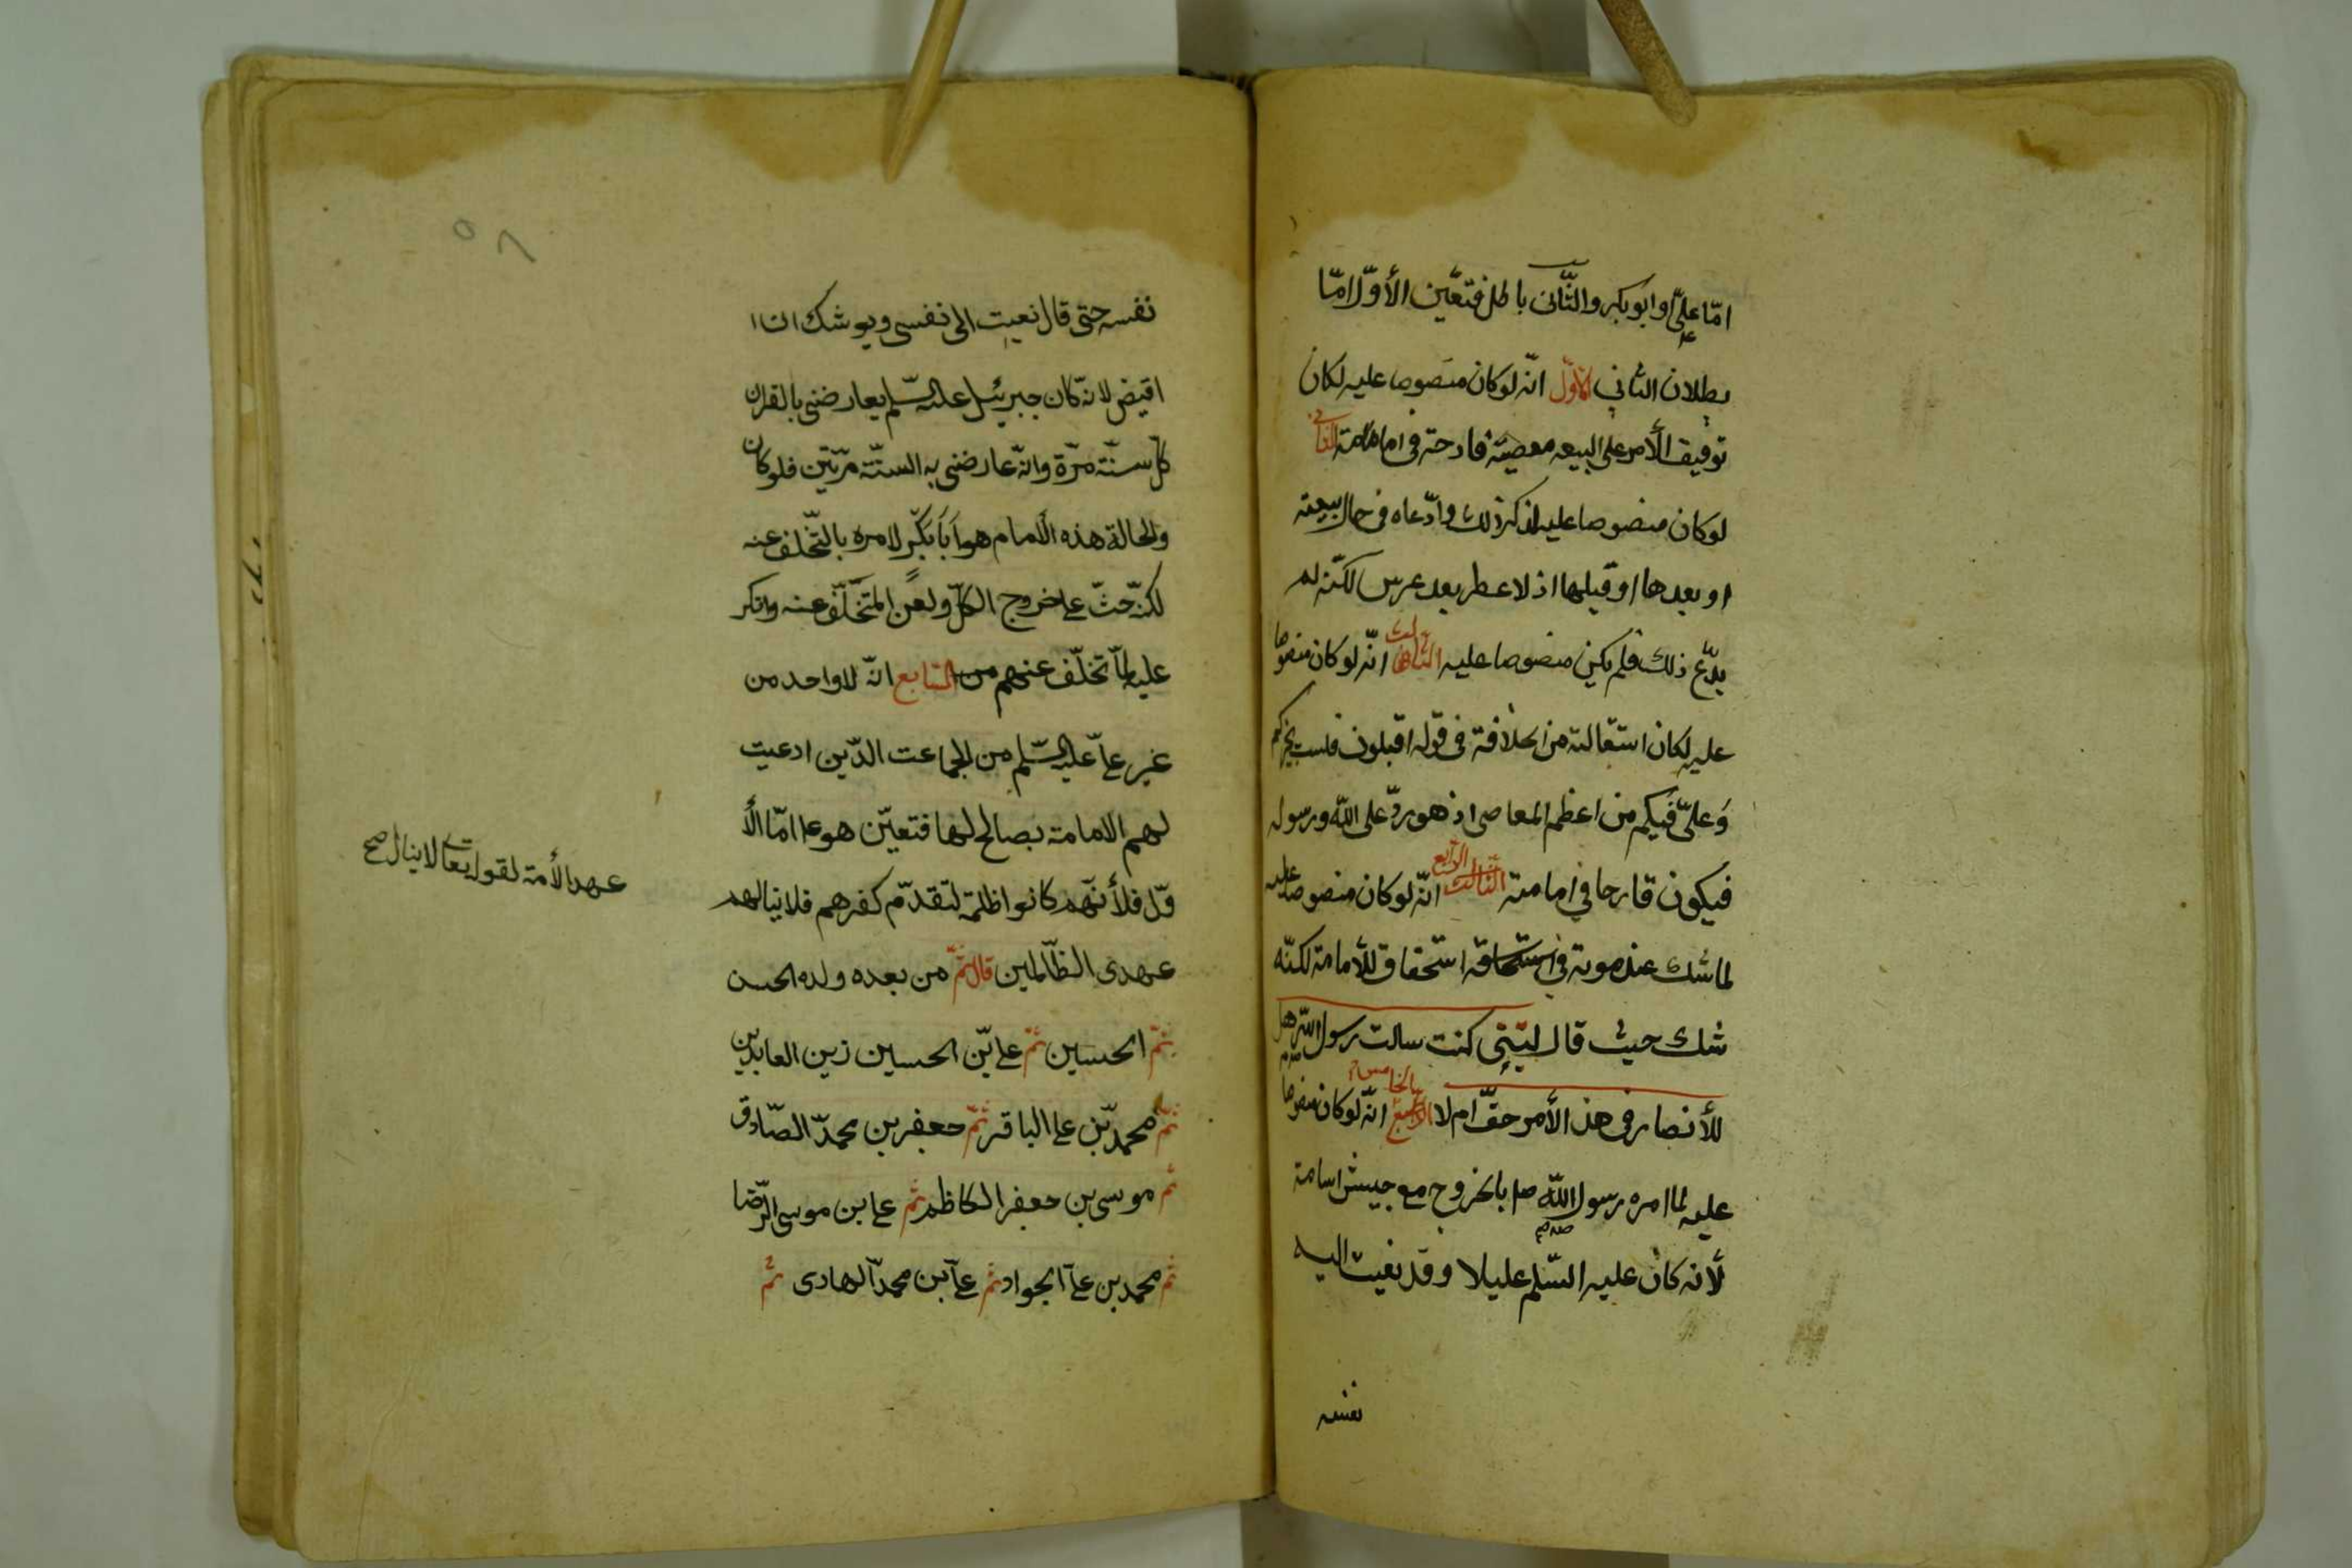 امّا علىّ او ابو بكر والثّانى باطل فتعيّن الأوّل امّا
بطلان الثانى الأوّل انّه لو كان منصوصا عليه لكان
توقيف الأمر على البيعه معصية قادحة فى امامته الثانى
لو كان منصوصا عليه لذكر ذلك وادّعاه فى حال بيعته
او بعدها او قبلها اذ لا عطر بعد عرس لكنّه لم
يدّع ذلك فلم يكن منصوصا عليه الثالث انّه لو كان منصوصا
عليه لكان استقالته من الخلافة فى قوله اقيلونى فلست بخيركم
وَعلىّ فيكم من اعظم المعاصى اذ هو ردّ على اللّه ورسوله
فيكون قادحا فى امامته الرّابع انّه لو كان منصوصا عليه
لما شك عند موته فى استحقاقه للأمامة لكنّه
شك حيث قال ليتنى كنت سالت رسول اللّه هل
للأنصار فى هذا الأمر حقّ ام لا الخامس انّه لو كان منصوصا
عليه لما امره رسول اللّه صلم بالخروج مع جيش اسامة
لأنه كان عليه السّلم عليلا وقد نعيت اليه
نفسه
٥٨
نفسه حتى قال نعيت الى نفسى ويوشك ان ا
اقبض لانّه كان جبرئيل عليه السّلم يعارضنى بالقران
كلّ سنّة مرّة وانّه عارضنى به السنّة مرّتين فلو كان
والحالة هذه الأمام هو اَبَا بَكْر لامره بالتّخلف عنه
لكنّه حثّ على خروج الكلّ ولعن المتخلّف عنه وانكر
عليه لمّا تخلّف عنهم من السّابع انّه لا واحد من
غير علىّ عليه السّلم من الجماعت الذّين ادعيت
لهم الامامة بصالح لها فتعيّن هو ع امّا الأ
وّل فلأنّهم كانوا ظلمة لتقدّم كفرهم فلا ينالهم
عهد الأمة لقوله تعالى لا ينال صح
عهدى الظّالمين قال ثمّ من بعده ولده الحسن
ثمّ الحسين ثمّ على بن الحسين زين العابدين
ثمّ محمدّ بن على الباقر ثمّ جعفر بن محمدّ الصّادق
ثم موسى بن جعفر الكاظم ثم على بن موسى الرّضا
ثم محمد بن على الجواد ثم على بن محمدّ الهادى ثم